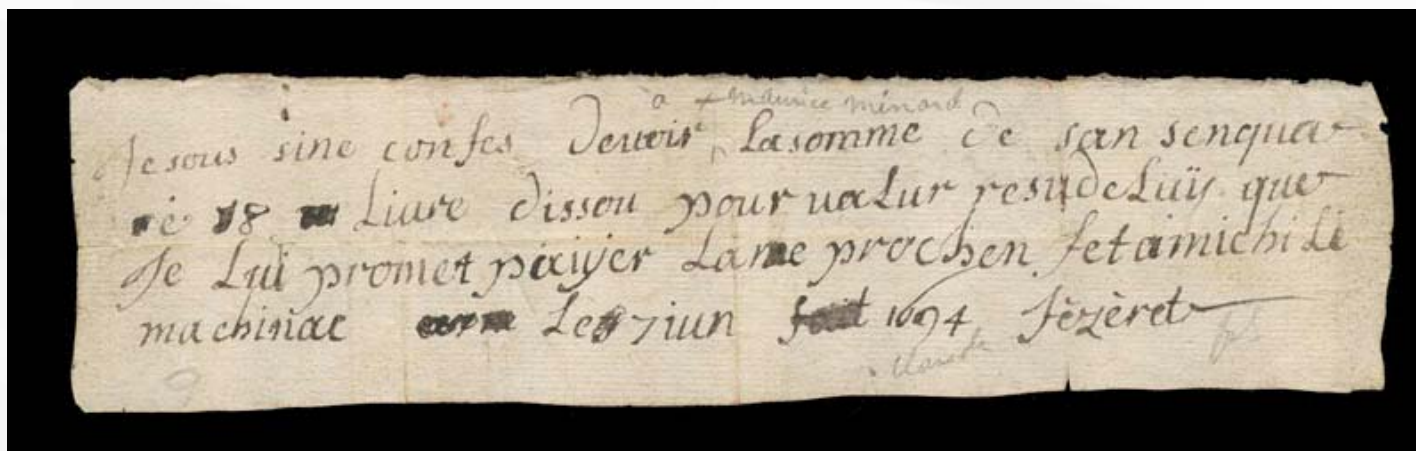 à + maurice ménard
Je sous sine confes devoir La somme de san senqua
18 Livre dissou pour valur resu de Luÿ que
Je Luÿ promet païyer Lanne prochen fet a michili
machinac Le 7 iun 1694 fézéret
claude fils